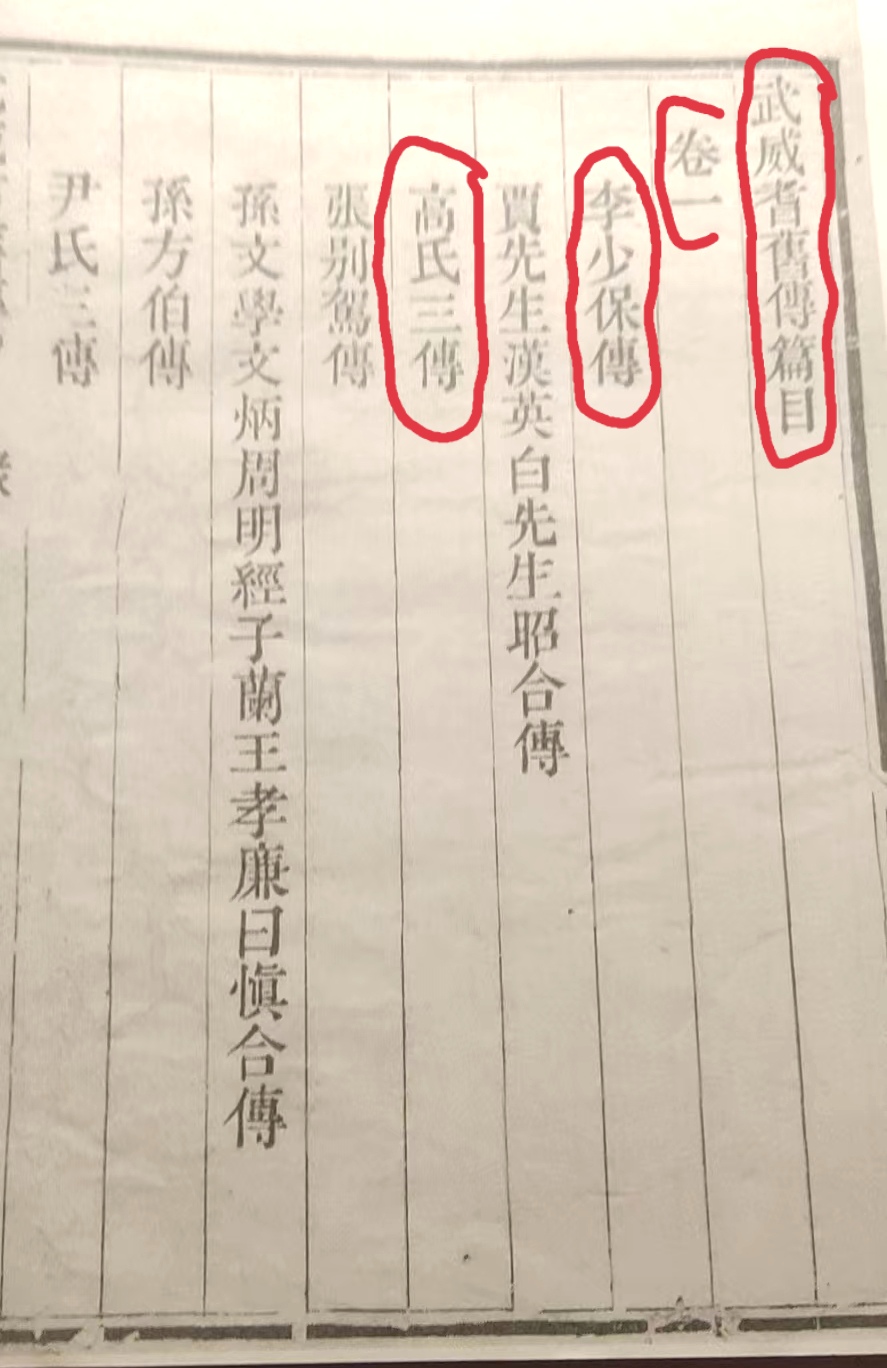 武威耆舊傳篇目
卷一
李少保傳
賈先生漢英白先生昭合傳
高氏三傳
張別駕傳
孫文學文炳周明經子蘭王孝廉曰慎合傳
孫方伯傳
尹氏三傳